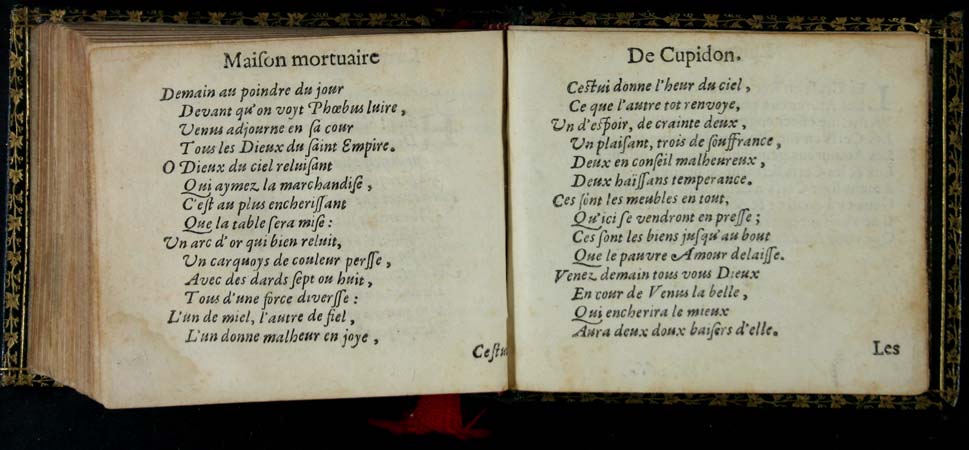 Maiſon mortuaire
Demain au poindre du jour
Devant qu'on voyt Phœbus luire,
Venus adjourne en ſa cour
Tous les Dieux du ſaint Empire.
O Dieux du ciel reluiſant
Qui aymez la marchandiſe,
C'eſt au plus encheriſſant
Que la table ſera miſe:
Un arc d'or qui bien reluit,
Un carquoys de couleur perſſe,
Avec des dards ſept ou huit,
Tous d'une force diverſſe:
L'un de miel, l'autre de fiel,
L'un donne malheur en joye,
Ceſtui
De Cupidon.
Ceſtui donne l'heur du ciel,
Ce que l'autre tot renvoye,
Un d'eſpoir, de crainte deux,
Un plaiſant, trois de ſouffrance,
Deux en conſeil malheureux,
Deux haïſſans temperance.
Ces ſont les meubles en tout,
Qu'ici ſe vendront en preſſe;
Ces ſont les biens juſqu'au bout
Que le pauvre Amour delaiſſe.
Venez demain tous vous Dieux
En cour de Venus la belle,
Qui encherira le mieux
Aura deux doux baiſers d'elle.
Les